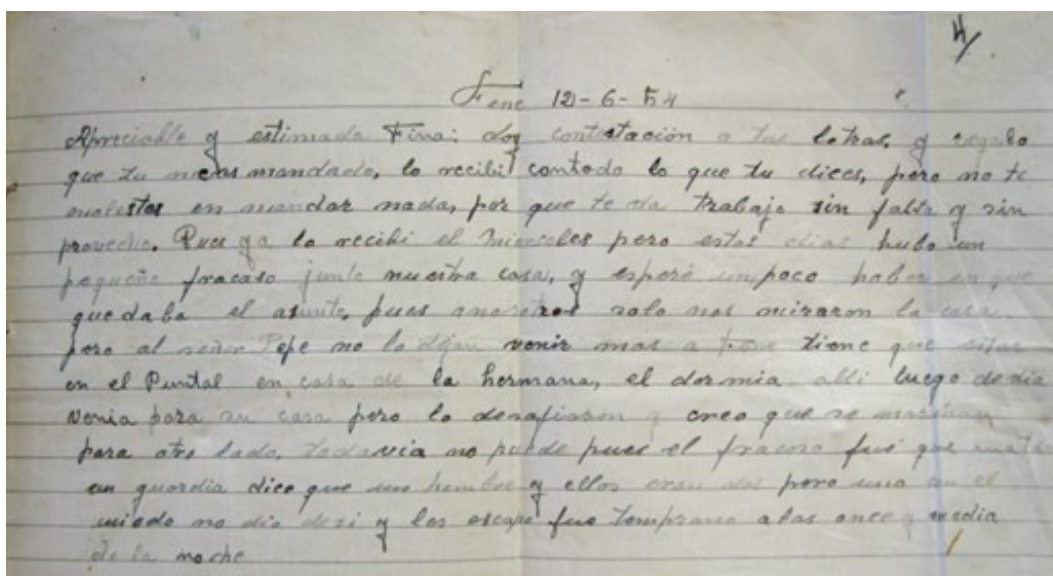 4/
Fene 12-6-54
Apreciable y estimada Fina: doy contestación a tus letras, y regalo
que tu meas mandado, lo recibi contodo lo que tu dices, pero no te
molestes en mandar nada, por que te da trabajo sin falta y sin
provecho. Pues ya lo recibi el Miercoles pero estos dias hubo un
pequeño fracaso junto nuestra casa, y esperé unpoco haber en que
quedaba el asunto, pues anosotros solo nos miraron la casa.
pero al señor Pepe no lo dejan venir mas a Fene tiene que estar
en el Puntal en casa de la hermana, el dormia alli luego de dia
venia para su casa pero lo desafiaron y creo que se marchan
para otro lado, todavia no puede pues el fracaso fué que mato
un guardia dice que un hombre y ellos eran dos pero uno en el
miedo no dio desi y les escapó fue temprano a las once y media
de la noche